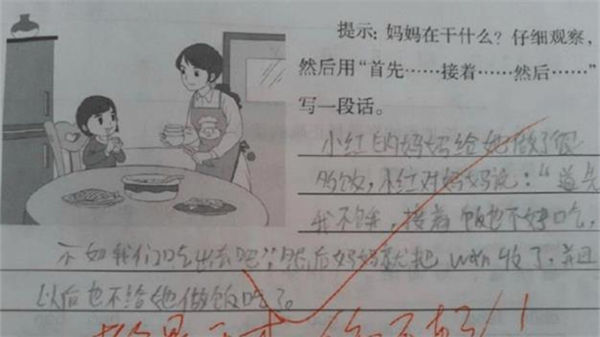 提示：妈妈在干什么？仔细观察，
然后用“首先……接着……然后……”
写一段话。
小红的妈妈给她做了很
多饭，小红对妈妈说：“首先
我不饿，接着饭也不好吃，
不如我们吃出去吧”；然后妈妈就把wǎn收了，并且
以后也不给她做饭吃了。